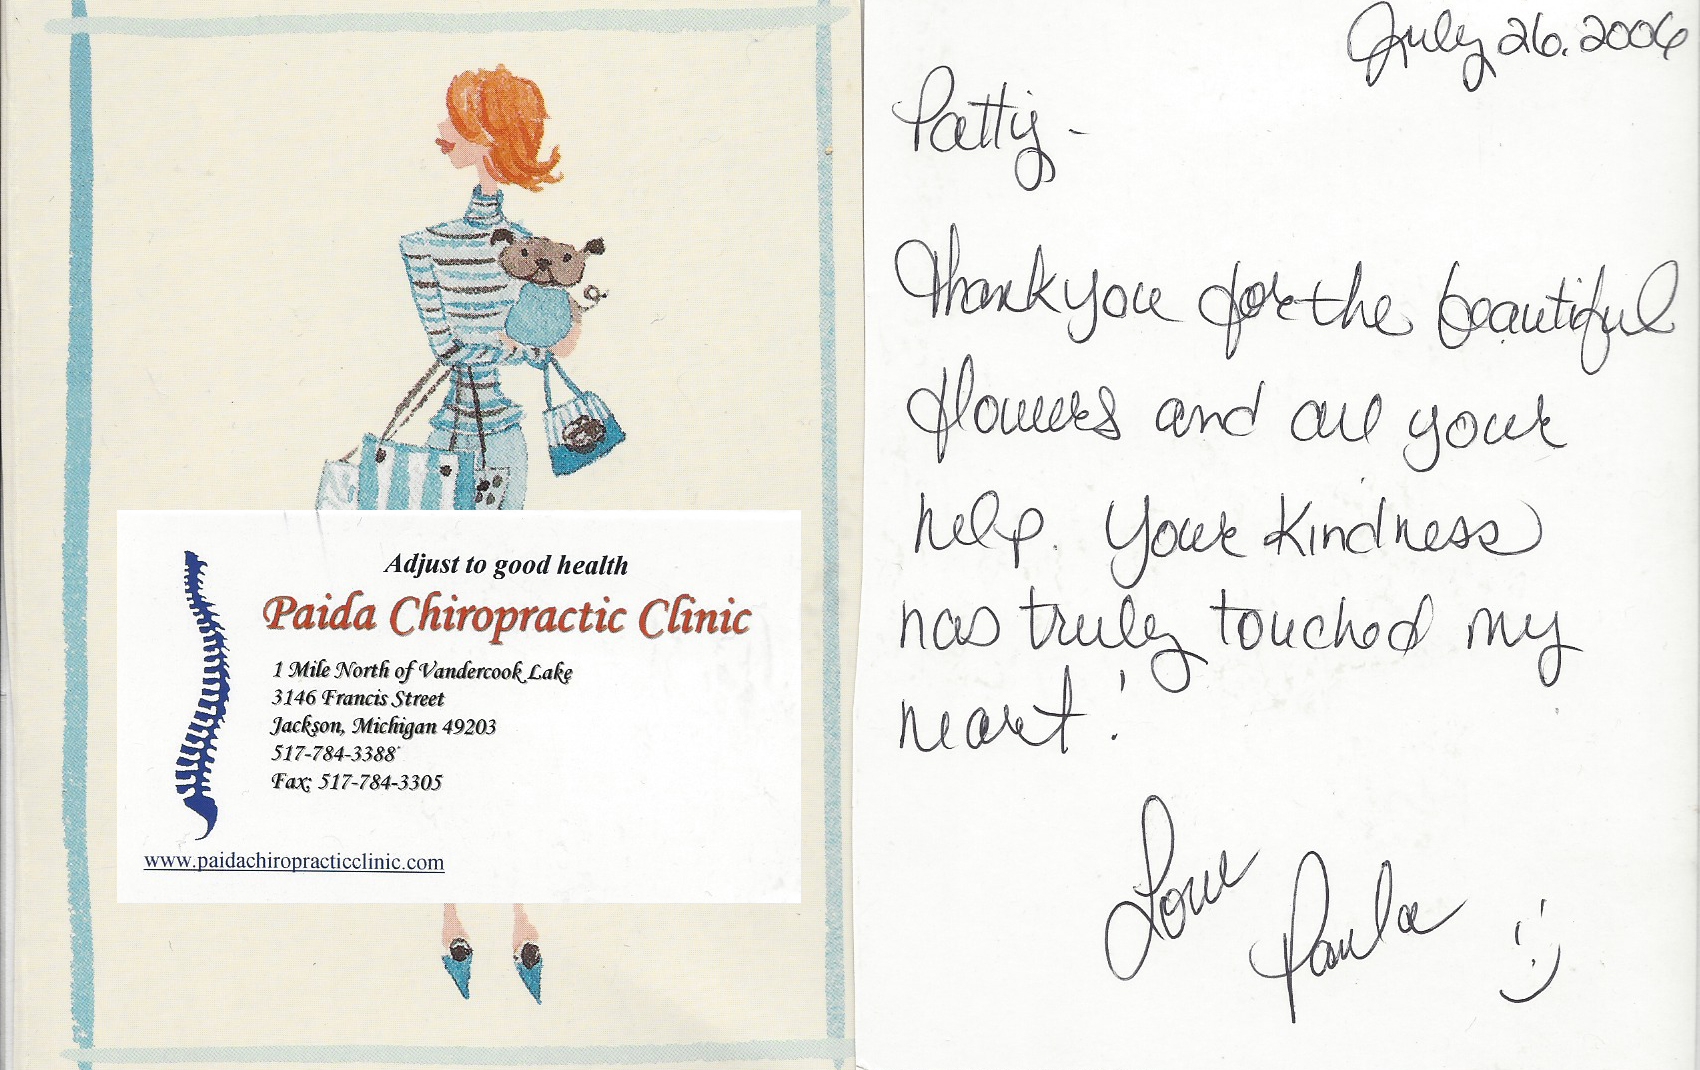 Adjust to good health
Paida Chiropractic Clinic
1 Mile North of Vandercook Lake
3146 Francis Street
Jackson, Michigan 49203
517-784-3388
Fax: 517-784-3305
www.paidachiropracticclinic.com
July 26. 2006
Patty -
Thank you for the beautiful
flowers and all your
help. Your kindness
has truly touched my
heart!
Love
Paula :)